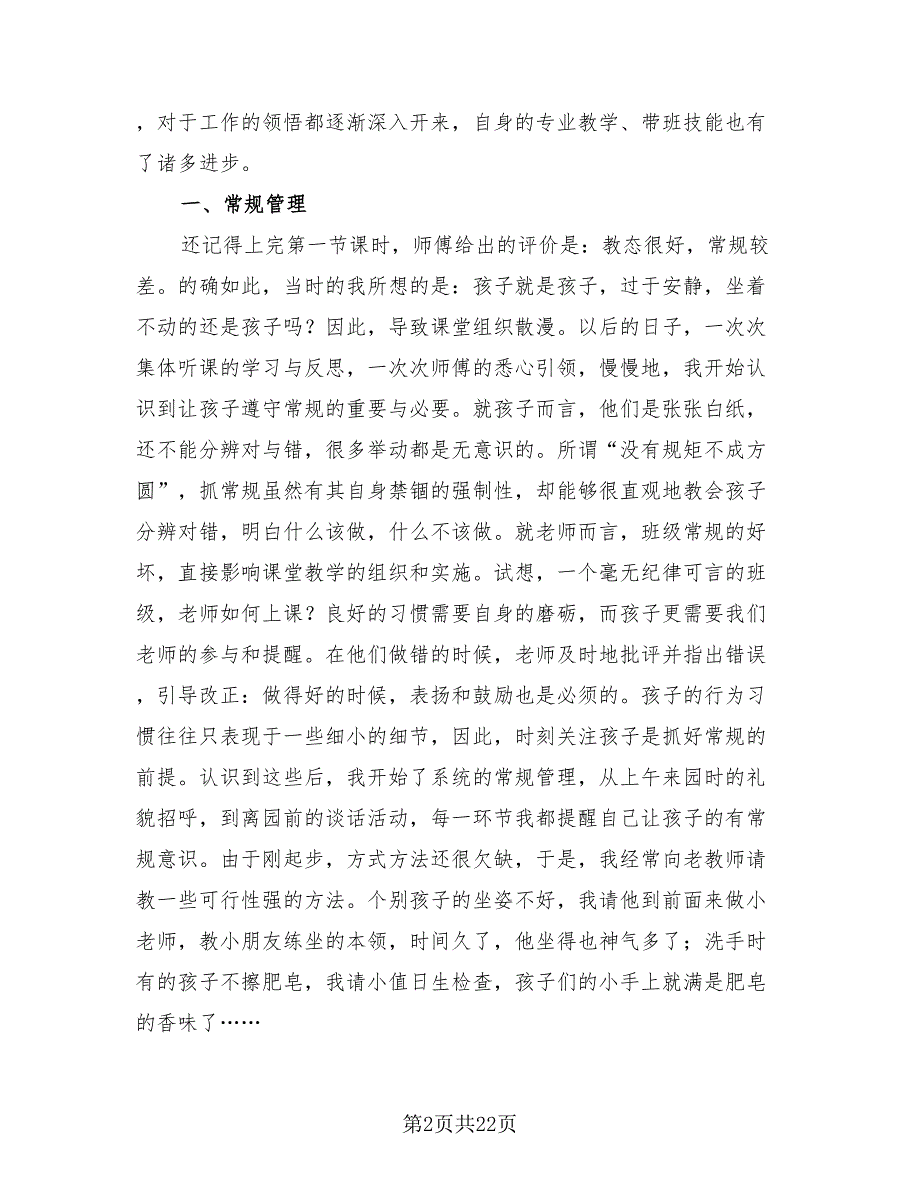 ，对于工作的领悟都逐渐深入开来，自身的专业教学、带班技能也有
了诸多进步。
一、常规管理
还记得上完第一节课时，师傅给出的评价是：教态很好，常规较
差。的确如此，当时的我所想的是：孩子就是孩子，过于安静，坐着
不动的还是孩子吗？因此，导致课堂组织散漫。以后的日子，一次次
集体听课的学习与反思，一次次师傅的悉心引领，慢慢地，我开始认
识到让孩子遵守常规的重要与必要。就孩子而言，他们是张张白纸，
还不能分辨对与错，很多举动都是无意识的。所谓“没有规矩不成方
圆”，抓常规虽然有其自身禁锢的强制性，却能够很直观地教会孩子
分辨对错，明白什么该做，什么不该做。就老师而言，班级常规的好
坏，直接影响课堂教学的组织和实施。试想，一个毫无纪律可言的班
级，老师如何上课？良好的习惯需要自身的磨砺，而孩子更需要我们
老师的参与和提醒。在他们做错的时候，老师及时地批评并指出错误
，引导改正：做得好的时候，表扬和鼓励也是必须的。孩子的行为习
惯往往只表现于一些细小的细节，因此，时刻关注孩子是抓好常规的
前提。认识到这些后，我开始了系统的常规管理，从上午来园时的礼
貌招呼，到离园前的谈话活动，每一环节我都提醒自己让孩子的有常
规意识。由于刚起步，方式方法还很欠缺，于是，我经常向老教师请
教一些可行性强的方法。个别孩子的坐姿不好，我请他到前面来做小
老师，教小朋友练坐的本领，时间久了，他坐得也神气多了；洗手时
有的孩子不擦肥皂，我请小值日生检查，孩子们的小手上就满是肥皂
的香味了……
第2页共22页